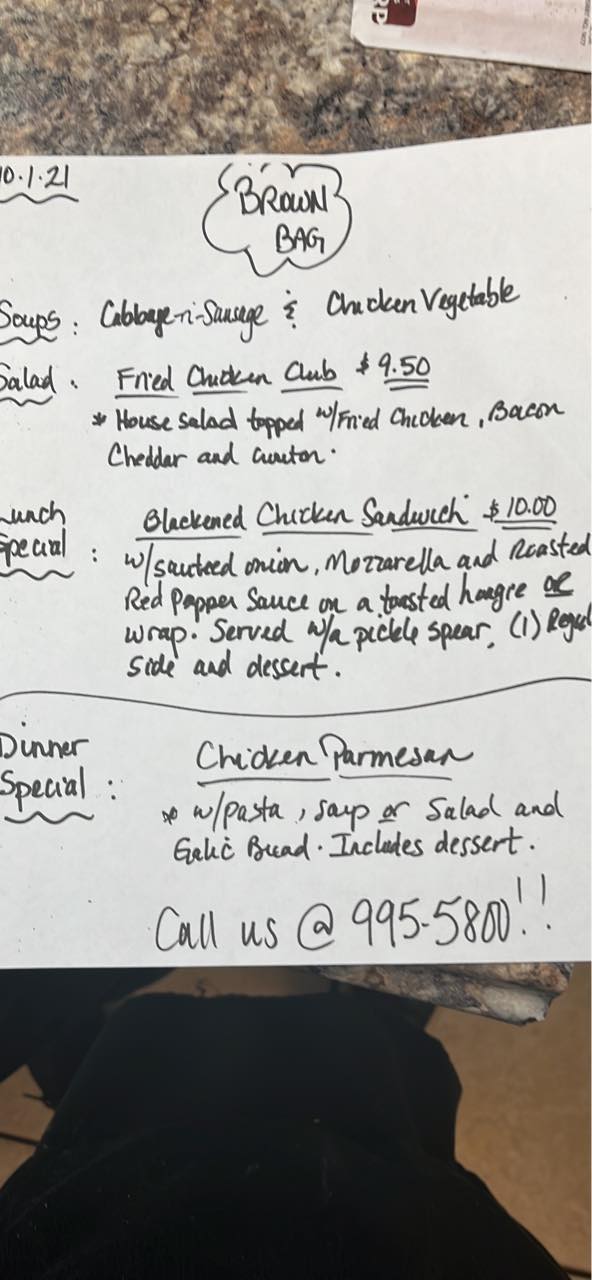 10.1.21
BROWN
BAG
Soups: Cabbage-n-Sausage & Chicken Vegetable
Salad. Fried Chicken Club $9.50
* House salad topped w/Fried Chicken, Bacon
Cheddar and
Lunch Special: Blackened Chicken Sandwich $10.00
w/sauteed onion, Mozzarella and Roasted
Red Pepper Sauce on a toasted hoagie or
wrap. Served w/a pickle spear, (1) Regul
side and dessert.
Dinner Special: Chicken Parmesan
* w/pasta, soup or Salad and
Galic Bread. Includes dessert.
Call us @ 995-5800!!